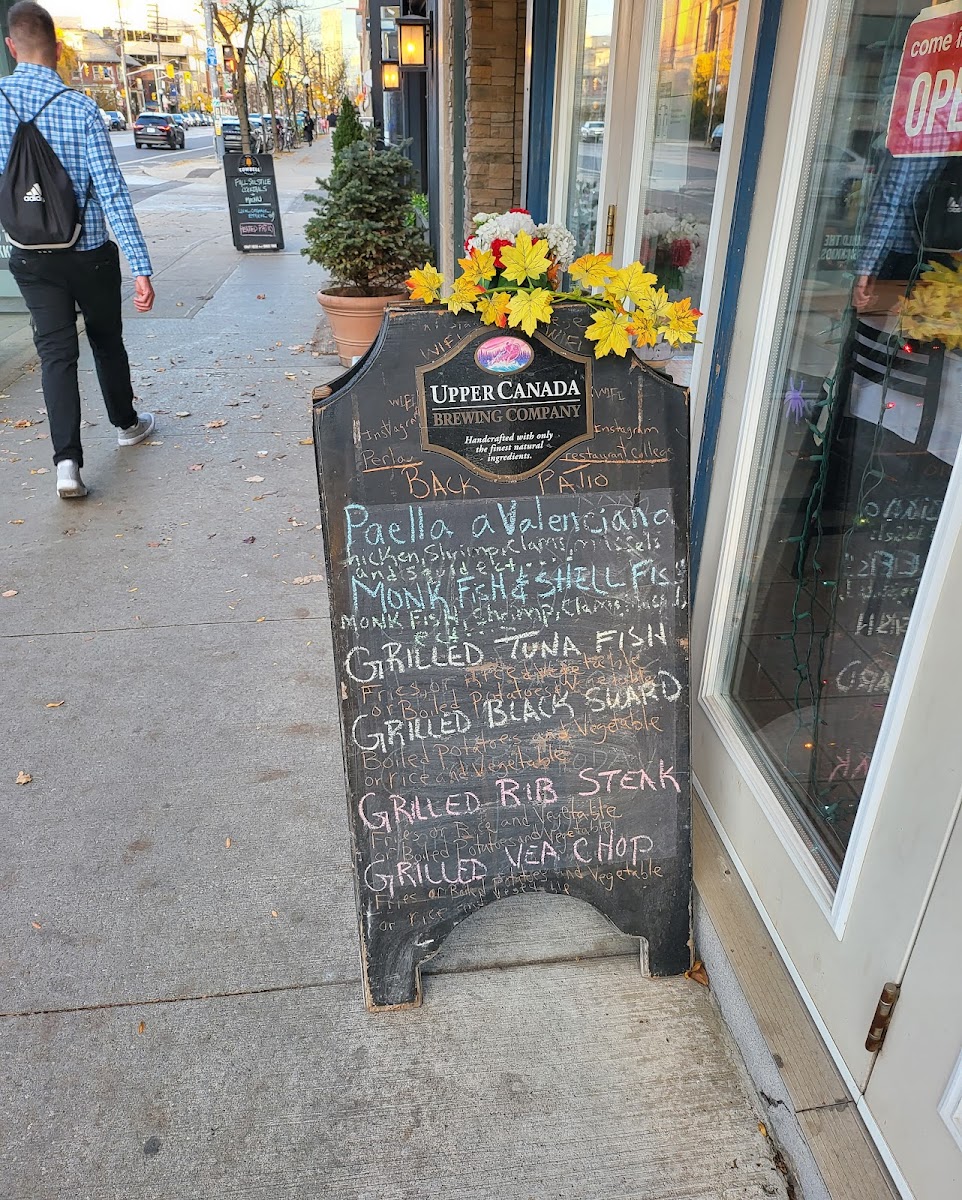 come in
OPE
adidas
COWBELL
FALL SOLSTICE
COCKTAILS
HEATED PATIO
WIFI
WIFI
UPPER CANADA
BREWING COMPANY
Handcrafted with only
the finest natural
ingredients.
WIFI
WIFI
Instagram
Instagram
Perla
restaurant college
BACK PATIO
Paella a Valenciana
hicken, Shrimp, Clams, mussels
and squid ect....
MONK FISH & SHELL FIS
MONK FISH, Shrimp, Clams,
ect....
GRILLED TUNA FISH
Fries, or rice and vegetable
or Boiled Potatoes & Vegetable
GRILLED BLACK SUARD
Boiled Potatoes and Vegetable
or rice and Vegetable
GRILLED RIB STEAK
Fries or Rice and Vegetable
or Boiled Potatoes and Vegetable
GRILLED VEA CHOP
Fries or Boiled potatoes and Vegetable
or rice and vegetable